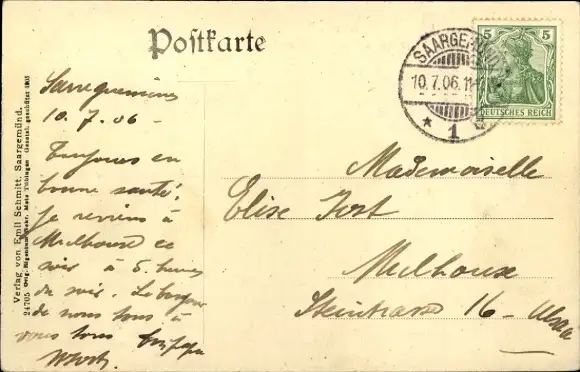 Postkarte
SAARGEMÜND
10.7.06.11
* 1
5 5
DEUTSCHES REICH
Sarreguemines
10. 7. 06 -
Toujours en
bonne santé.
Je reviens à
Mulhouse ce
soir à 5 heures
du soir. Le bonjour
de nous tous à
vous tous
Mademoiselle
Elise Jost
Mulhouse
Steinstrasse 16 - Alsace
Verlag von Emil Schmitt, Saargemünd.
24705